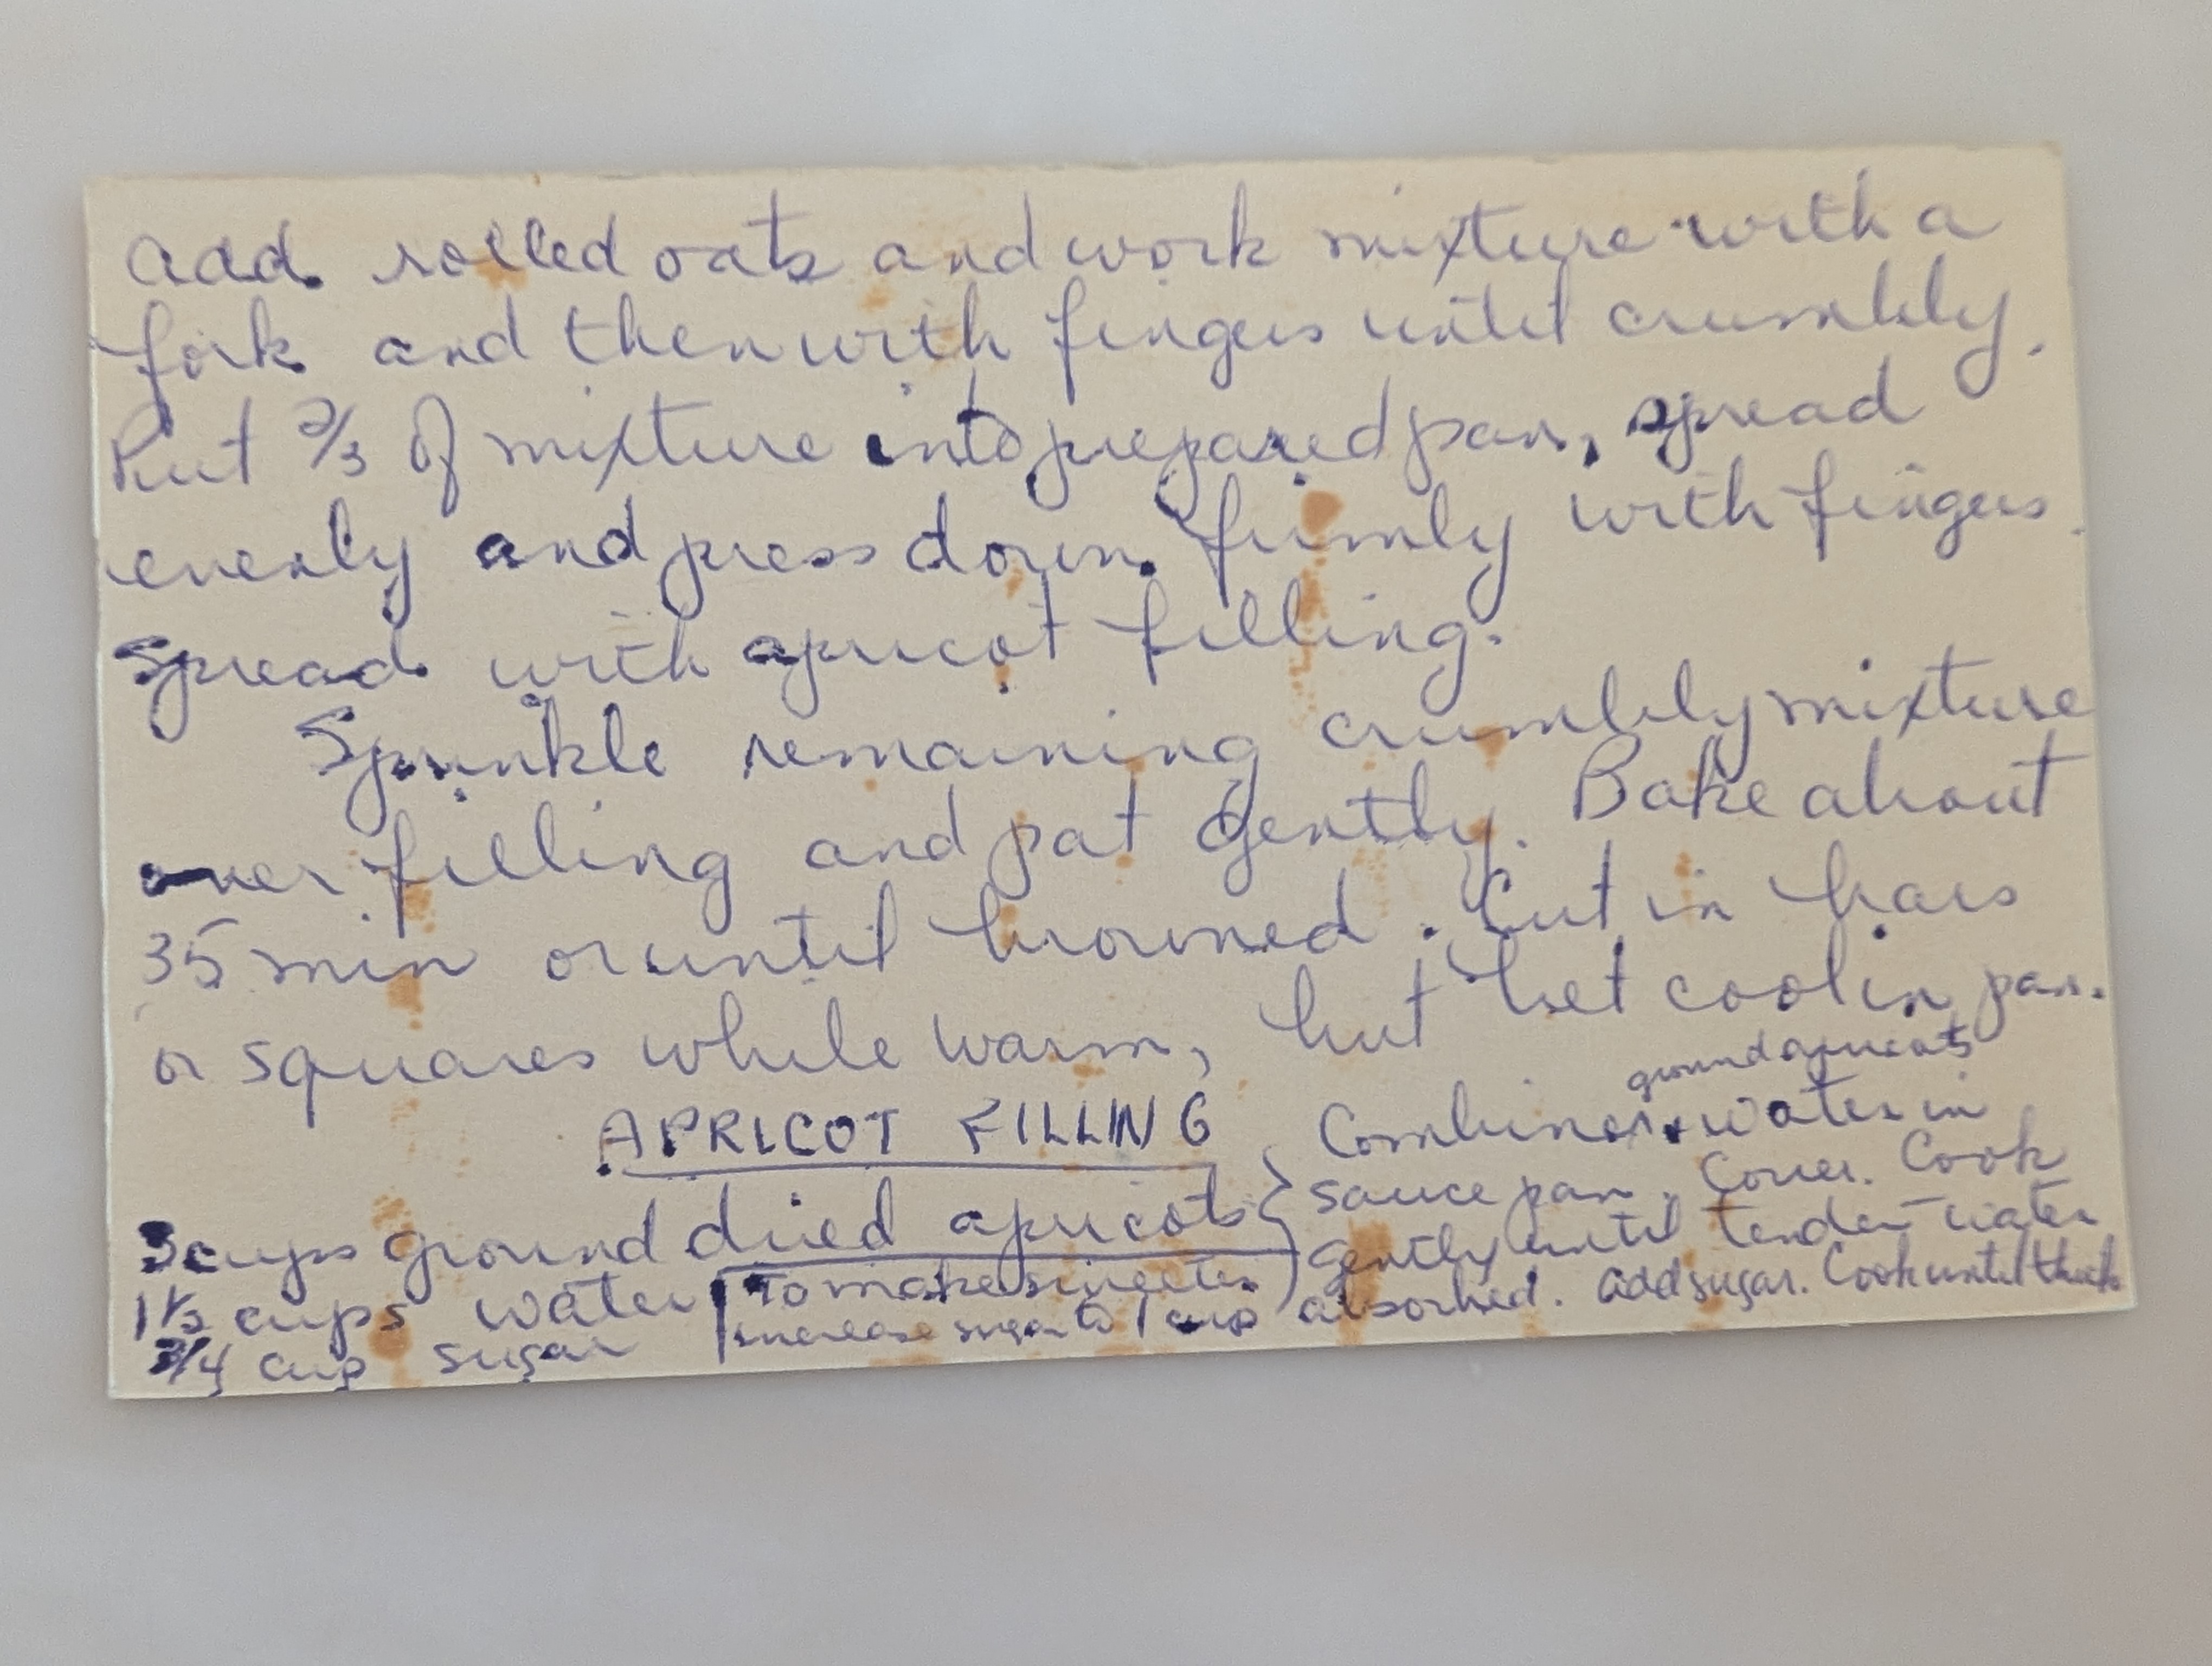 add rolled oats and work mixture with a
fork and then with fingers until crumbly.
Put 2/3 of mixture into prepared pan, spread
evenly and press down firmly with fingers.
Spread with apricot filling.
Sprinkle remaining crumbly mixture
over filling and pat gently. Bake about
35 min or until browned. Cut in bars
or squares while warm, but let cool in pan.
APRICOT FILLING
3 cups ground dried apricots
1 1/2 cups water
3/4 cup sugar
To make sweeter
increase sugar to 1 cup
ground apricots
Combine + water in
sauce pan. Cover. Cook
gently until tender water
absorbed. add sugar. Cook until thick